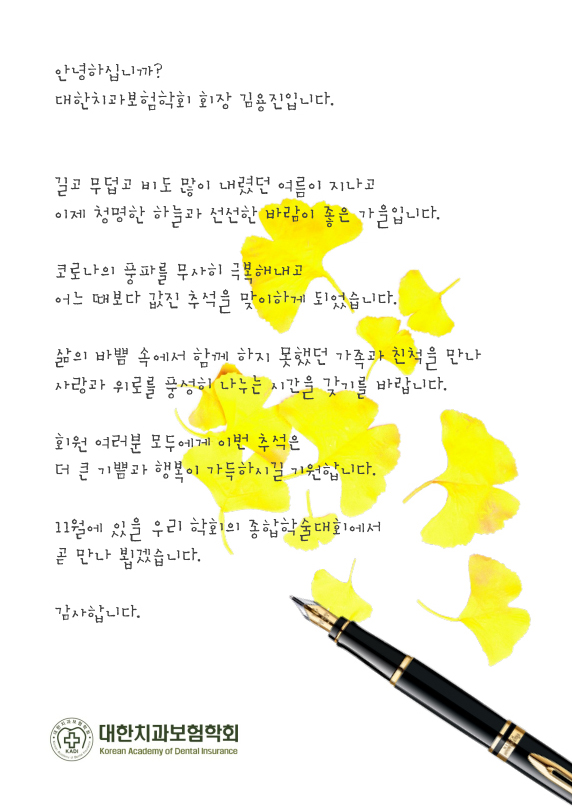 안녕하십니까?
대한치과보험학회 회장 김용진입니다.
길고 무덥고 비도 많이 내렸던 여름이 지나고
이제 청명한 하늘과 선선한 바람이 좋은 가을입니다.
코로나의 풍파를 무사히 극복해내고
어느 때보다 값진 추석을 맞이하게 되었습니다.
삶의 바쁨 속에서 함께 하지 못했던 가족과 친척을 만나
사랑과 위로를 풍성히 나누는 시간을 갖기를 바랍니다.
회원 여러분 모두에게 이번 추석은
더 큰 기쁨과 행복이 가득하시길 기원합니다.
11월에 있을 우리 학회의 종합학술대회에서
곧 만나 뵙겠습니다.
감사합니다.
대한치과보험학회
KADI
Korean Academy of Dental Insurance